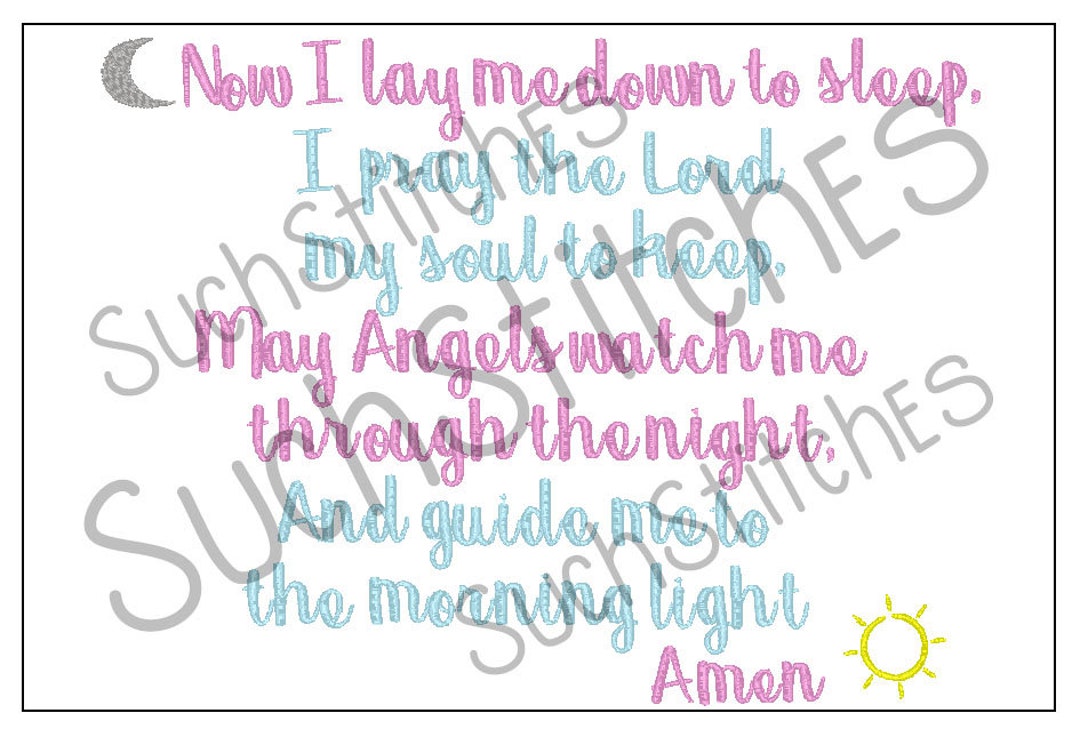 Now I lay me down to sleep,
I pray the Lord
my soul to keep,
May Angels watch me
through the night,
And guide me to
the morning light
Amen
SuchStitchES
SuchStitchES
SuchStitchES